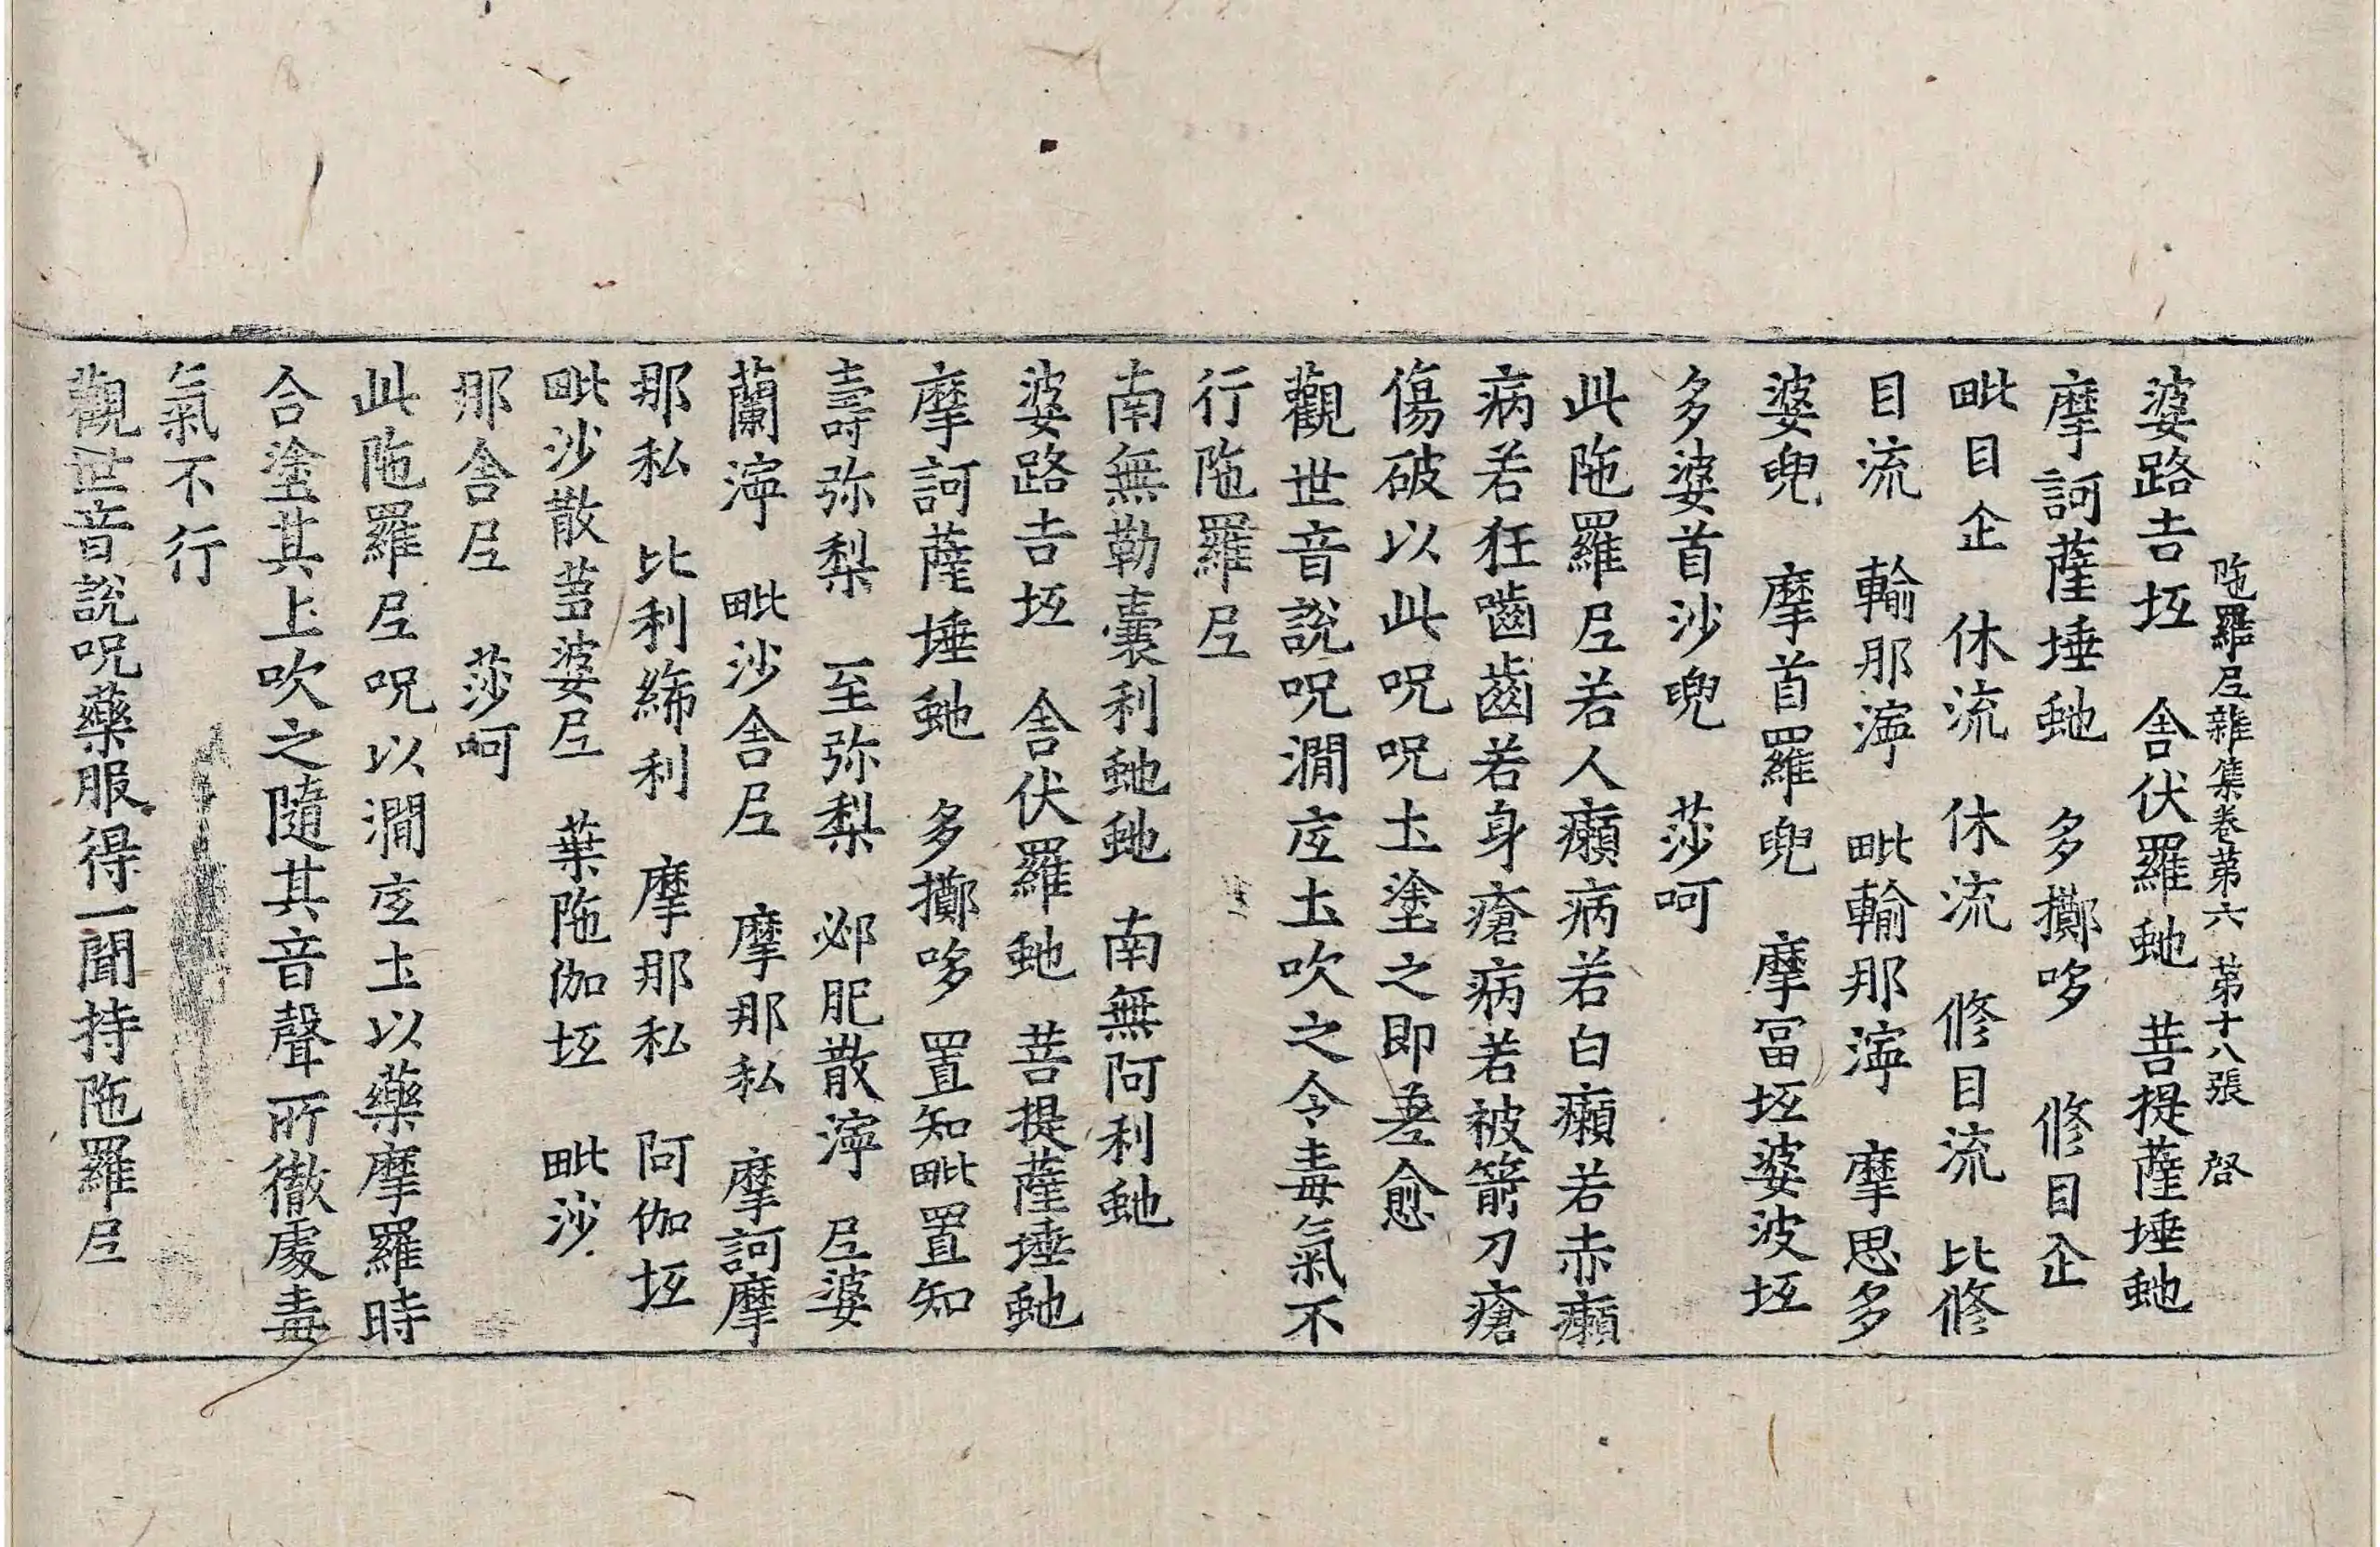 陁羅𡰱雜集卷苐六 苐十八張 啓
婆路吉坘 舍伏羅虵 菩提薩埵虵
摩訶薩埵虵 多擲哆 修目企
毗目企 休流 休流 修目流 比修
目流 輸那𭰫 毗輸那𭰫 摩思多
婆兜 摩首羅兜 摩冨坘婆波坘
多婆首沙兜 莎呵
此陁羅𡰱若人癩病若白癩若赤癩
病若狂嚙齒若身瘡病若被箭刀瘡
傷破以此呪呪土塗之即差愈
觀世音說呪澗㡳土吹之令毒氣不
行陁羅𡰱
南無勒囊利虵虵 南無阿利虵
婆路吉坘 舍伏羅虵 菩提薩埵虵
摩訶薩埵虵 多擲哆 置知毗置知
壽弥梨 至弥梨 邲肥散𭰫 𡰱婆
蘭𭰫 毗沙舍𡰱 摩那私 摩訶摩
那私 比利絺利 摩那私 阿伽坘
毗沙散䓤婆𡰱 葉陁伽坘 毗沙
那舍𡰱 莎呵
此陁羅𡰱呪以澗㡳土以藥摩羅時
合塗其上吹之隨其音聲所徹處毒
氣不行
觀世音說呪藥服得一聞持陁羅𡰱